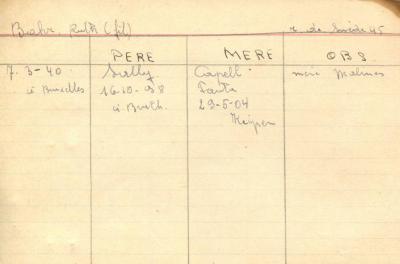 Bahr. Ruth (fil) r. de Suède 45
PERE MERE OBS
7. 3-40. Sally Capell mère Malines
à Bruxelles 16-10-98 Fanta
à 23-5-04